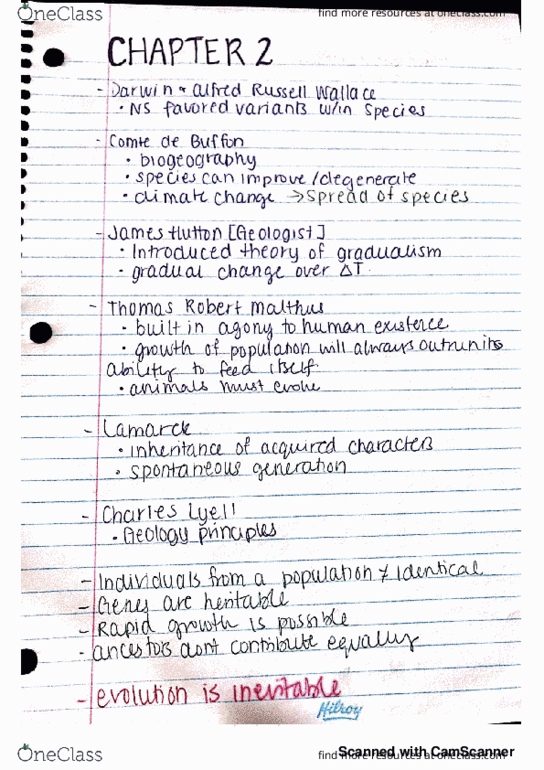 OneClass
find more resources at oneclass.com
CHAPTER 2
- Darwin & Alfred Russell Wallace
• NS favored variants w/in species
- Comte de Buffon
• biogeography
• species can improve/degenerate
• climate change → spread of species
- James Hutton [Geologist]
• Introduced theory of gradualism
• gradual change over ΔT
- Thomas Robert Malthus
• built in agony to human existence
• growth of population will always outrun its
ability to feed itself
• animals must evolve
- Lamarck
• inheritance of acquired characters
• spontaneous generation
- Charles Lyell
• Geology principles
- Individuals from a population ≠ identical
- Genes are heritable
- Rapid growth is possible
- ancestors dont contribute equally
- evolution is inevitable
Hilroy
OneClass
find more resources at oneclass.com
Scanned with CamScanner